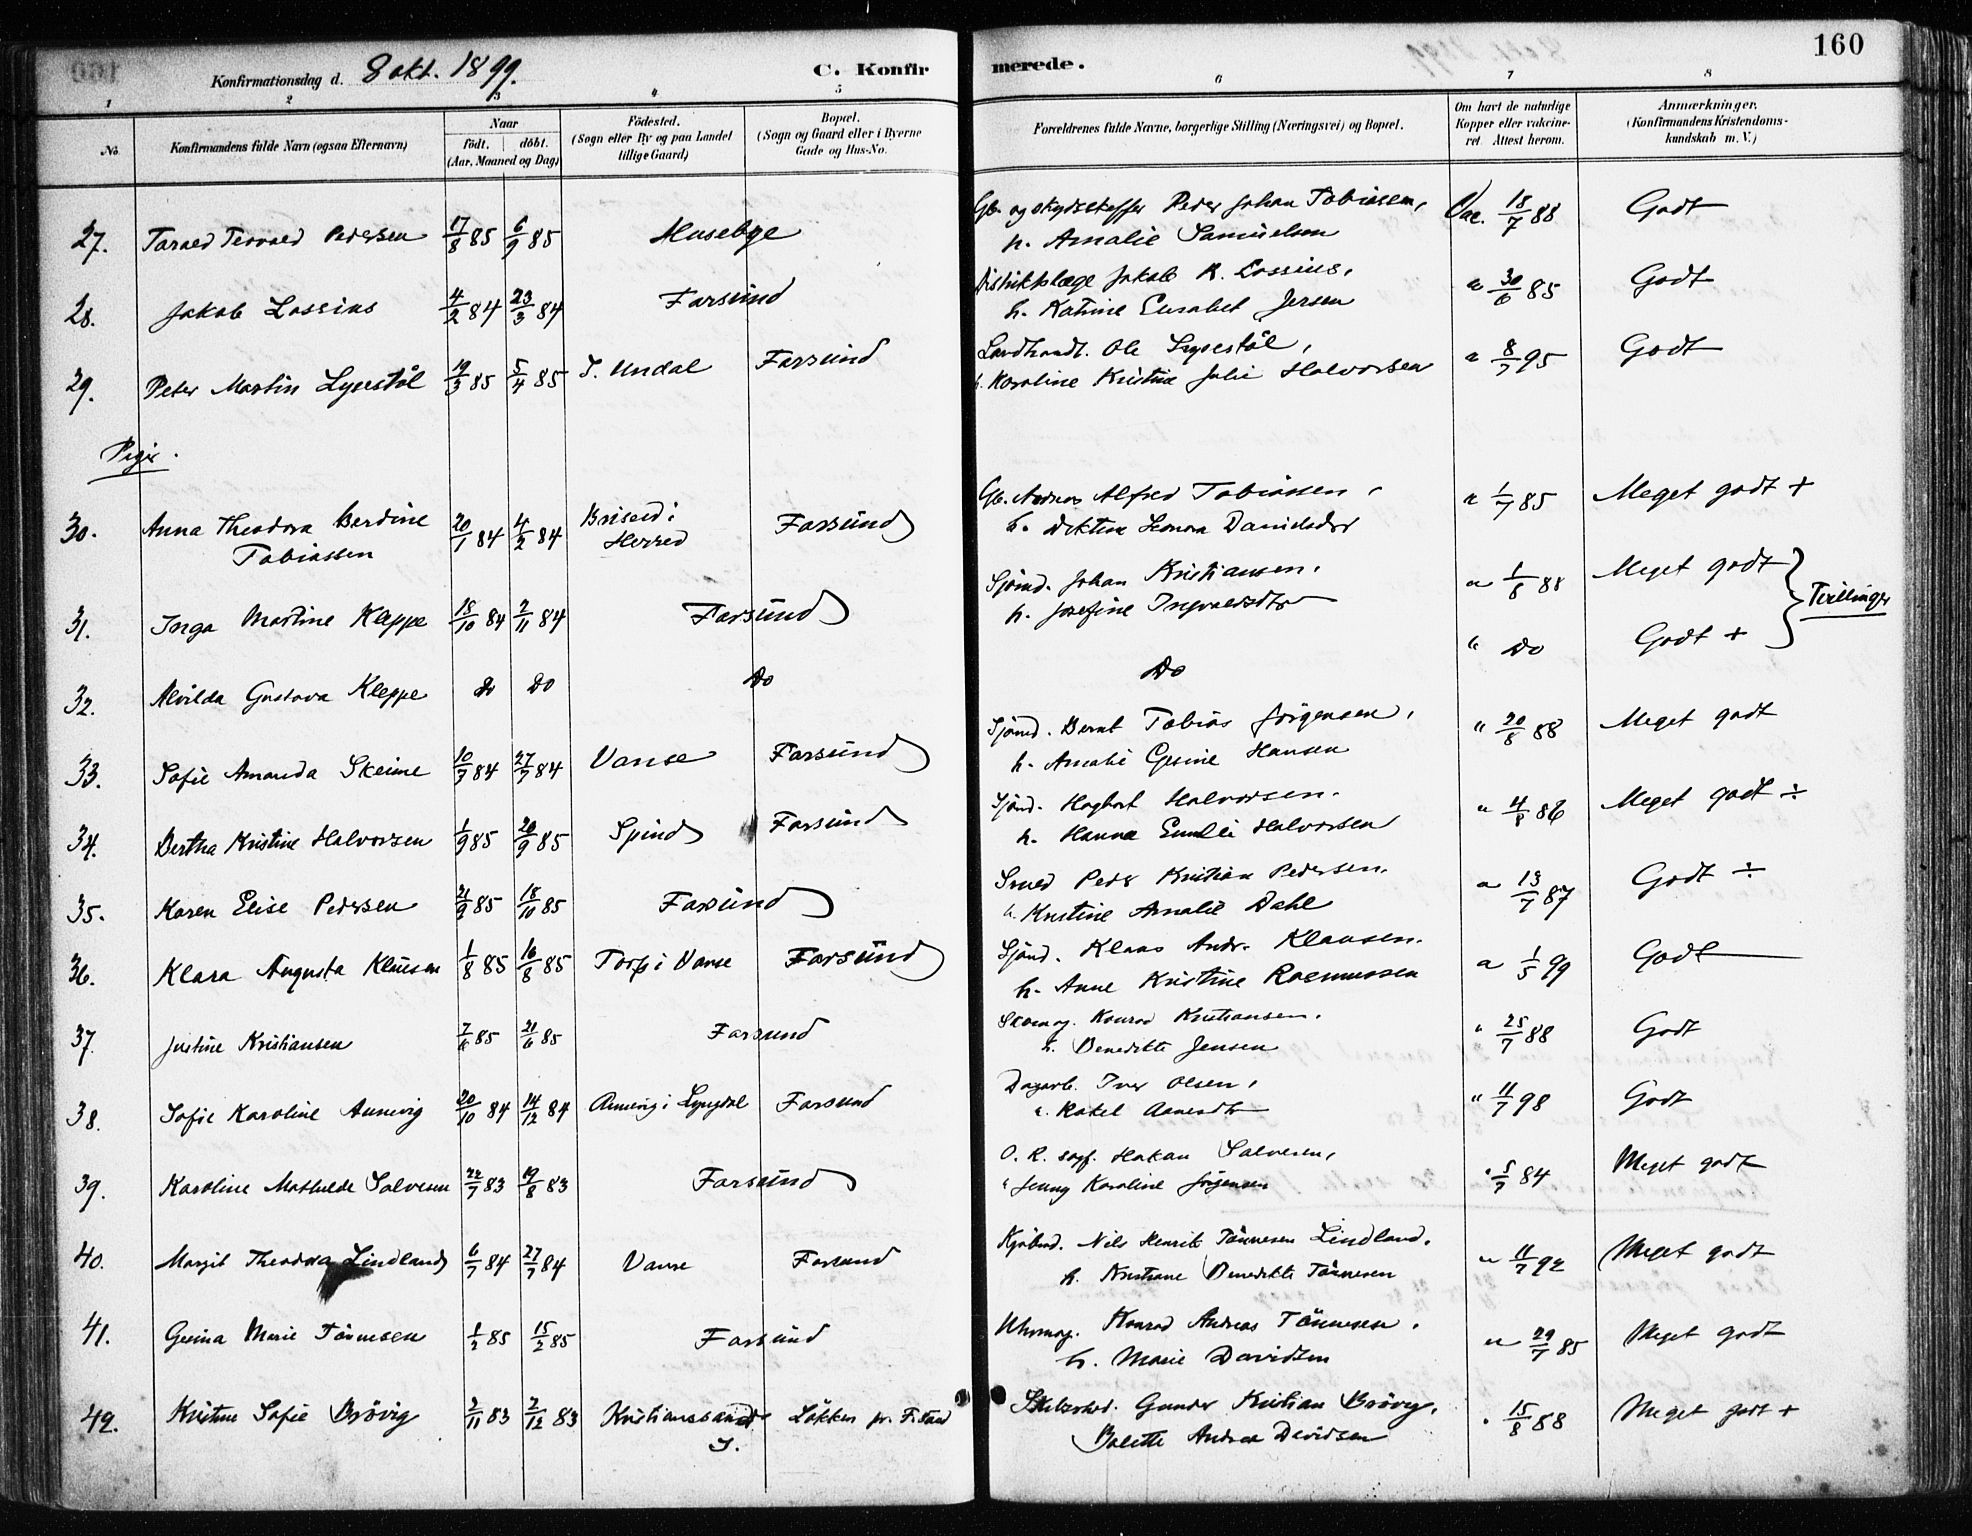 160
Konfirmationsdag d. 8 okt. 1899. C. Konfirmerede.
1 2 3 4 5 6 7 8
No. Konfirmandens fulde Navn (ogsaa Efternavn) Naar født. døbt. (Aar, Maaned og Dag) Fødested. (Sogn eller By og paa Landet tillige Gaard) Bopæl. (Sogn og Gaard eller i Byerne Gade og Hus-No. Forældrenes fulde Navne, borgerlige Stilling (Næringsvei) og Bopæl. Om havt de naturlige Kopper eller vaccineret. Attest herom. Anmærkninger. (Konfirmandens Kristendomskundskab m. V.)
27. Pedersen 17/8 85 6/9 85 Husebye Gb. og Peder Johan Tobiasen, Vac. 18/7 88 Godt
h. Amalie Samuelsen
28. Jakob Lossius 4/2 84 23/3 84 Farsund Distriktslæge Jakob K. Lossius, " 30/6 85 Godt
h. Katrine Elisabet Jersen
29. Peter Martin Lygestøl 19/3 85 5/4 85 S. Undal Farsund Landhandl. Ole Lygestøl, " 8/7 95 Godt
h. Karoline Kristine Julie Halvorsen
Piger.
30. Anna Theodora Berdine 20/1 84 4/2 84 Briseid i Farsund Gb. Andreas Alfred Tobiassen, " 1/7 85 Meget godt +
Tobiassen Herred h. Leonora Danielsdtr
31. Inga Martine Kleppe 18/10 84 2/11 84 Farsund Sjömd. Johan Kristiansen, " 1/8 88 Meget godt } Tvillinger
h. Josefine Ingvaldsdtr
32. Alvilda Gustava Kleppe Do Do Do Do " Do Godt +
33. Sofie Amanda Skeime 10/7 84 27/7 84 Vanse Farsund Sjömd. Bernt Tobias Jørgensen, " 20/8 88 Meget godt
h. Amalie Gesine Hansen
34. Bertha Kristine Halvorsen 1/9 85 20/9 85 Spind Farsund Sjömd. Hagbart Halvorsen. " 4/8 86 Meget godt ÷
h. Hanna Emilie Halvorsen
35. Karen Elise Pedersen 21/9 85 18/10 85 Farsund Smed Peder Kristian Pedersen. " 13/7 87 Godt ÷
h. Kristine Amalie Dahl
36. Klara Augusta Klausen 1/8 85 16/8 85 Torp i Vanse Farsund Sjömd. Klaas Andr. Klausen. " 1/5 99 Godt
h. Anne Kristine Rasmussen
37. Justine Kristiansen 7/6 85 21/6 85 Farsund Skomag. Konrad Kristiansen. " 25/7 88 Godt
h. Benedikte Jensen
38. Sofie Karoline Aunevig 20/10 84 14/12 84 Aunevig i Lyngdal Farsund Dagarb. Iver Olsen, " 11/7 98 Godt
" Rakel Aanensdtr
39. Karoline Mathilde Salvesen 22/7 83 19/8 83 Farsund O. R. sagf. Hakan Salvesen, " 5/7 84 Meget godt
" Jenny Karoline Jørgensen
40. Margit Theodora Lindland 6/7 84 27/7 84 Vanse Farsund Kjøbmd. Nils Henrik Tønnesen Lindland. " 11/7 92 Meget godt
h. Kristiane Benedikte Tønnesen
41. Gesina Marie Tønnesen 1/2 85 15/2 85 Farsund Uhrmag. Konrad Andreas Tønnesen. " 29/7 85 Meget godt
h. Marie Davidsen
42. Kristine Sofie Brøvig 2/11 83 2/12 83 Kristianssand Løkken pr. F.sund Gunder Kristian Brøvig, " 15/8 88 Meget godt +
S. Bolette Andrea Davidsen